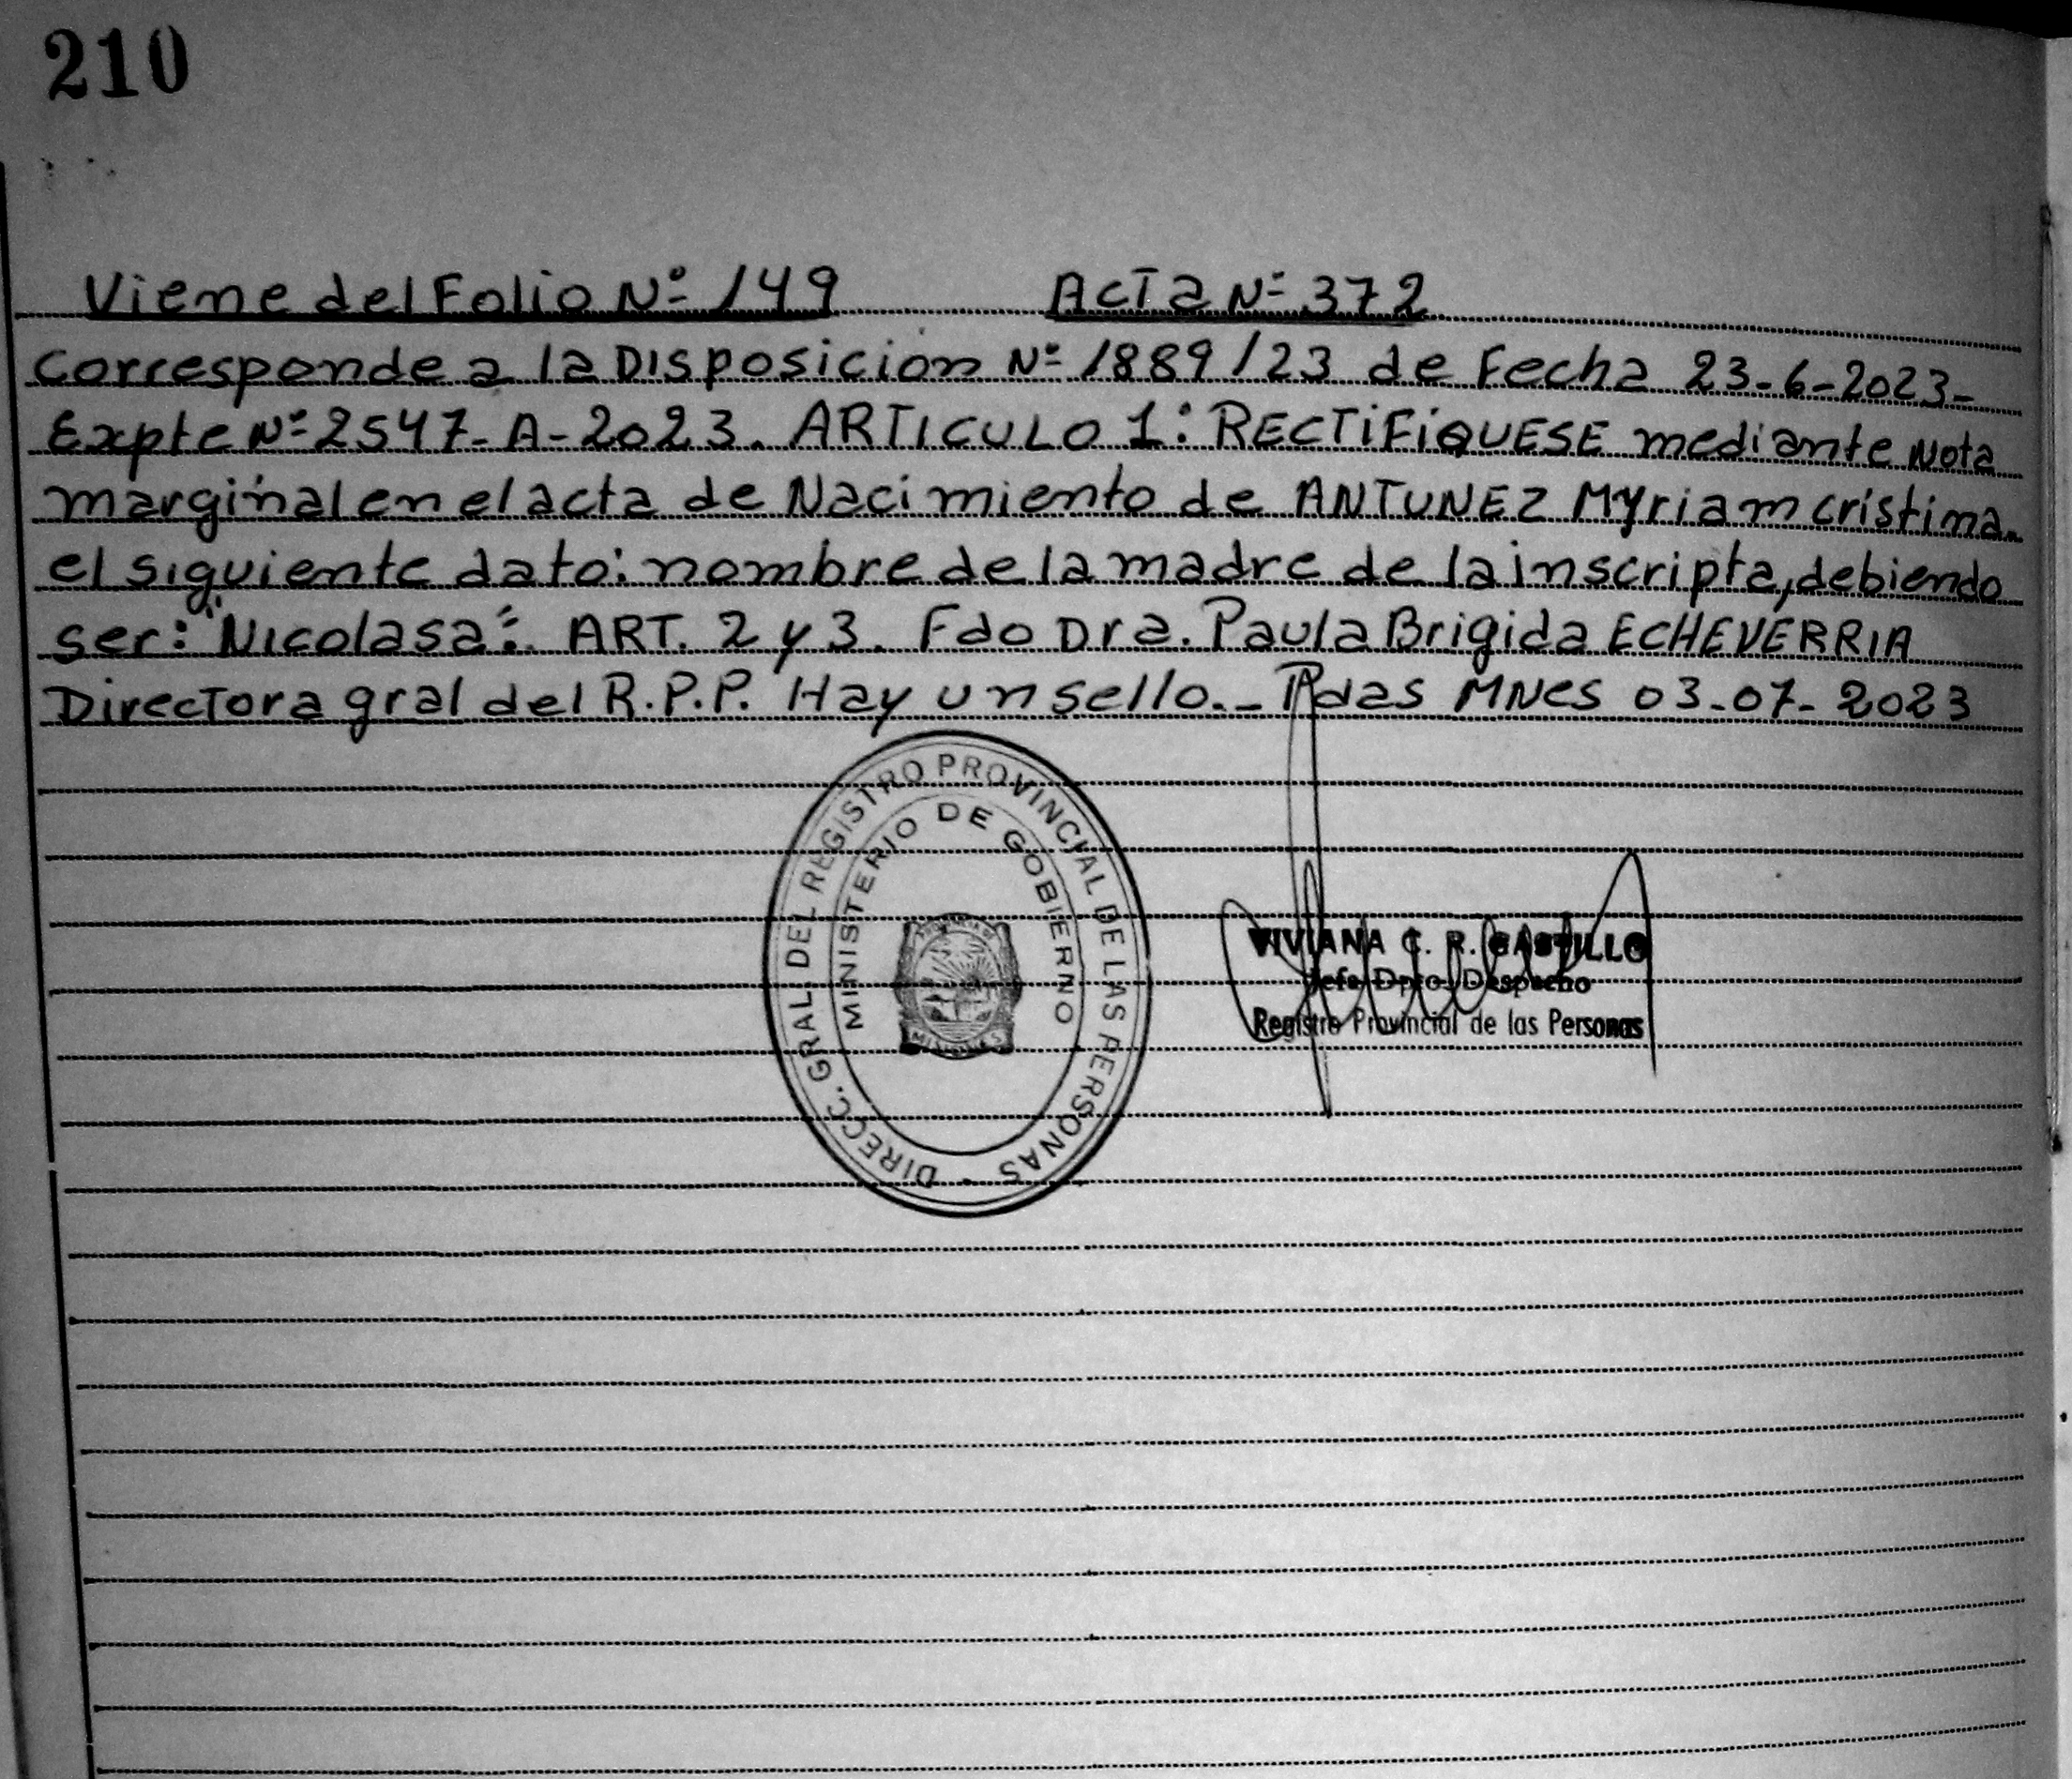 210
Viene del Folio Nº 149 Acta Nº 372
Corresponde a la Disposicion Nº 1889/23 de Fecha 23-6-2023-
Expte Nº 2547-A-2023. ARTICULO 1: RECTIFIQUESE mediante Nota
marginal en el acta de Nacimiento de ANTUNEZ Myriam cristina.
el siguiente dato: nombre de la madre de la inscripta, debiendo
ser: "Nicolasa". ART. 2 y 3. Fdo Dra. Paula Brigida ECHEVERRIA
Directora gral del R.P.P. Hay un sello.- Pdas MNes 03-07-2023
DIRECC. GRAL. DEL REGISTRO PROVINCIAL DE LAS PERSONAS
MINISTERIO DE GOBIERNO
MISIONES
VIVIANA C. R. CASTILLO
Jefe Dpto. Despacho
Registro Provincial de las Personas